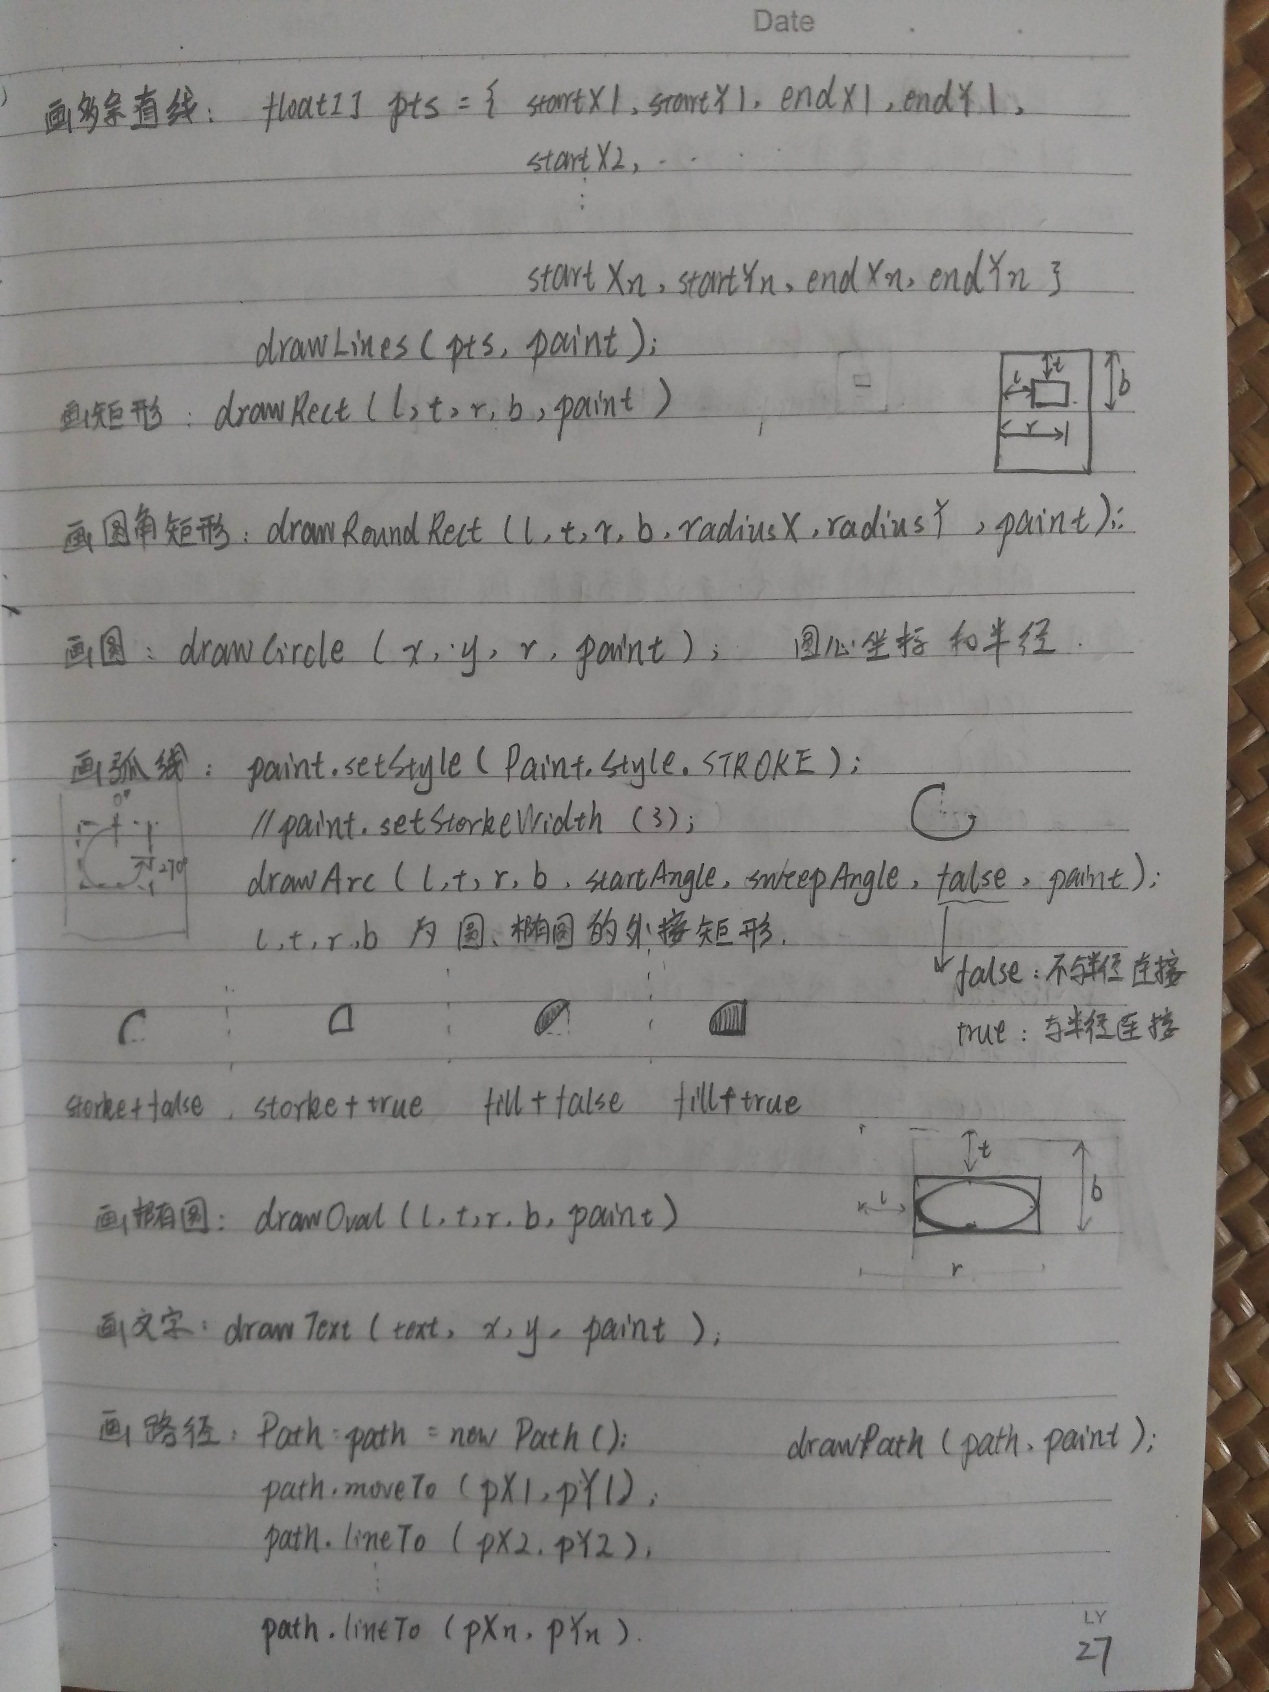 Date
画多条直线： float[] pts = { startX1, startY1, endX1, endY1,
startX2, ...
⋮
startXn, startYn, endXn, endYn }
drawLines ( pts, paint );
画矩形 : drawRect ( l, t, r, b, paint )
l t b
r
画圆角矩形: drawRoundRect ( l, t, r, b, radiusX, radiusY , paint );
画圆: drawCircle ( x, y, r, paint ); 圆心坐标和半径.
画弧线: paint.setStyle ( Paint.Style.STROKE );
0°
// paint.setStorkeWidth (3);
270°
drawArc ( l, t, r, b, startAngle, sweepAngle, false, paint );
l, t, r, b 为圆、椭圆的外接矩形.
false: 不与半径连接
true: 与半径连接
storke+false storke+true fill+false fill+true
t
l b
画椭圆: drawOval ( l, t, r, b, paint )
r
画文字: drawText ( text, x, y, paint );
画路径: Path path = new Path (); drawPath ( path, paint );
path.moveTo ( pX1, pY1 );
path.lineTo ( pX2, pY2 );
⋮
path.lineTo ( pXn, pYn ).
LY
27